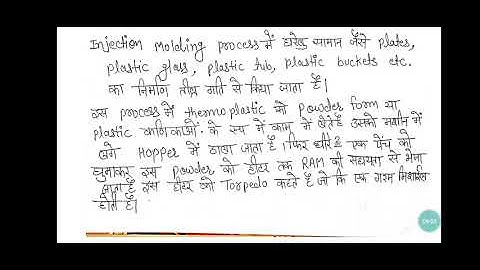 Injection Molding process में घरेलु सामान जैसे plates,
plastic glass, plastic tub, plastic buckets etc.
का निर्माण तीव्र गति से किया जाता है।
इस process में thermoplastic को powder form या
plastic कणिकाओं के रूप में काम में लेते है उसको मशीन में
लगे HOPPER में डाला जाता है। फिर धीरे 2 एक पेंच को
घुमाकर इस powder को हीटर तक RAM की सहायता से भेजा
जाता है इस हीटर को Torpedo कहते है जो कि एक गरम
होती है।